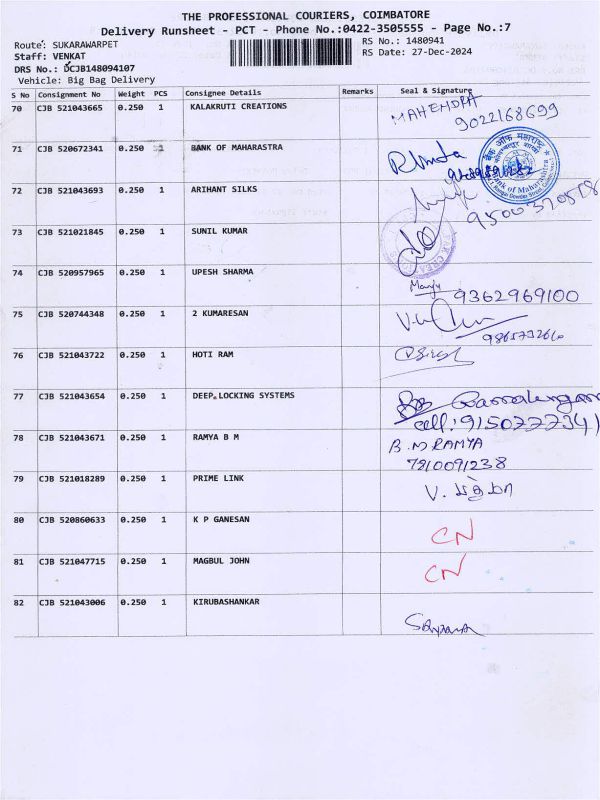 THE PROFESSIONAL COURIERS, COIMBATORE
Delivery Runsheet - PCT - Phone No.:0422-3505555 - Page No.:7
Route: SUKARAWARPET
RS No.: 1480941
Staff: VENKAT
RS Date: 27-Dec-2024
DRS No.: DCJB148094107
Vehicle: Big Bag Delivery
S No Consignment No Weight PCS Consignee Details Remarks Seal & Signature
70 CJB 521043665 0.250 1 KALAKRUTI CREATIONS MAHENDRA
9022168699
71 CJB 520672341 0.250 1 BANK OF MAHARASTRA
Bank of Maharashtra
72 CJB 521043693 0.250 1 ARIHANT SILKS
73 CJB 521021845 0.250 1 SUNIL KUMAR
74 CJB 520957965 0.250 1 UPESH SHARMA 9362969100
75 CJB 520744348 0.250 1 2 KUMARESAN
76 CJB 521043722 0.250 1 HOTI RAM
77 CJB 521043654 0.250 1 DEEP LOCKING SYSTEMS
cell: 9150777341
78 CJB 521043671 0.250 1 RAMYA B M B.M RAMYA
7210091238
79 CJB 521018289 0.250 1 PRIME LINK V.
80 CJB 520860633 0.250 1 K P GANESAN CN
81 CJB 521047715 0.250 1 MAGBUL JOHN CN
82 CJB 521043006 0.250 1 KIRUBASHANKAR